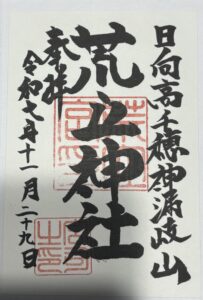 日向高千穂神漏岐山
荒立神社
奉拝
令和七年十一月二十九日